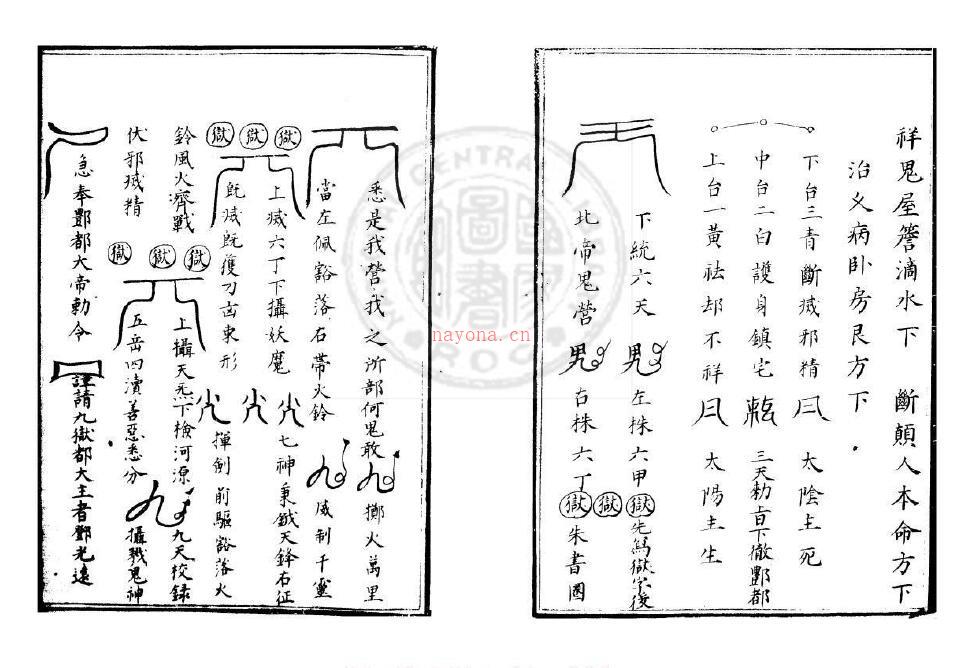 祥鬼屋簷滴水下 斷顛人本命方下
治乂病卧房艮方下
下台三青斷滅邪精 太陰主死
中台二白護身鎮宅 三天勅旨下徹酆都
上台一黃祛却不祥 太陽主生
下統六天 左株六甲 獄 先爲獄字後
北帝鬼營 右株六丁 獄 獄 朱書圈
悉是我營我之所部何鬼敢 擲火萬里
當左佩豁落右帶火鈴 威制千靈
獄 獄 獄
上滅六丁下攝妖魔 七神秉鉞天鋒右征
旣滅旣獲刀 東形 揮劍前驅豁落火
鈴風火齊戰
獄 獄 獄
上攝天炁下檢河源 九天校錄
伏邪滅精 五岳四瀆善惡悉分 攝戮鬼神
急奉酆都大帝勅令 謹請九獄都大主者鄧光遠
CENTRAL
ROC
nayona.cn